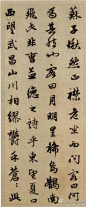 蘇子愀然正襟危坐而問客曰何
為其然也客曰月明星稀烏鵲南
飛此非曹孟德之詩乎東望夏口
西望武昌山川相繆鬱乎蒼蒼此